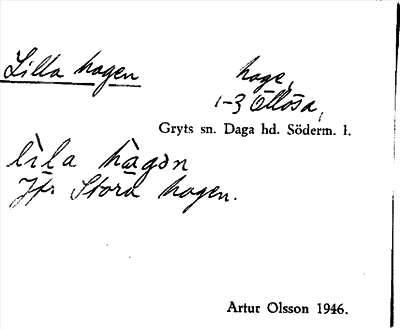 Lilla hagen
hage,
1-3 Ellösa,
Gryts sn. Daga hd. Söderm. l.
lìla hàgən
Jfr Stora hagen.
Artur Olsson 1946.